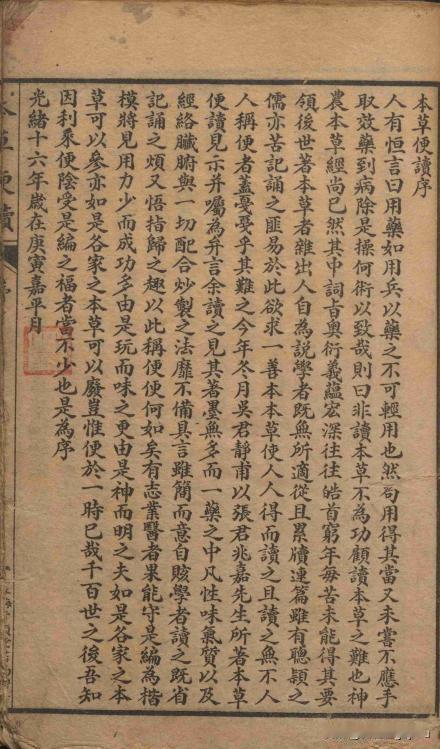 本草便讀序
人有恒言曰用藥如用兵以藥之不可輕用也然苟用得其當又未嘗不應手
取效藥到病除是操何術以致哉則曰非讀本草不為功顧讀本草之難也神
農本草經尚已然其中詞古奧衍義蘊宏深往往皓首窮年每苦未能得其要
領後世著本草者雜出人自為說學者既無所適從且累牘連篇雖有聰穎之
儒亦苦記誦之匪易於此欲求一善本本草使人人得而讀之且讀之無不人
人稱便者蓋戞戞乎其難之今年冬月吳君靜甫以張君兆嘉先生所著本草
便讀見示并囑為弁言余讀之見其著墨無多而一藥之中凡性味氣質以及
經絡臟腑與一切配合炒製之法靡不備具言雖簡而意自賅學者讀之既省
記誦之煩又悟指歸之趣以此稱便便何如矣有志業醫者果能守是編為楷
模將見用力少而成功多由是玩而味之更由是神而明之夫如是各家之本
草可以參亦如是各家之本草可以廢豈惟便於一時已哉千百世之後吾知
因利乘便陰受是編之福者當不少也是為序
光緒十六年歲在庚寅嘉平月
本草便讀